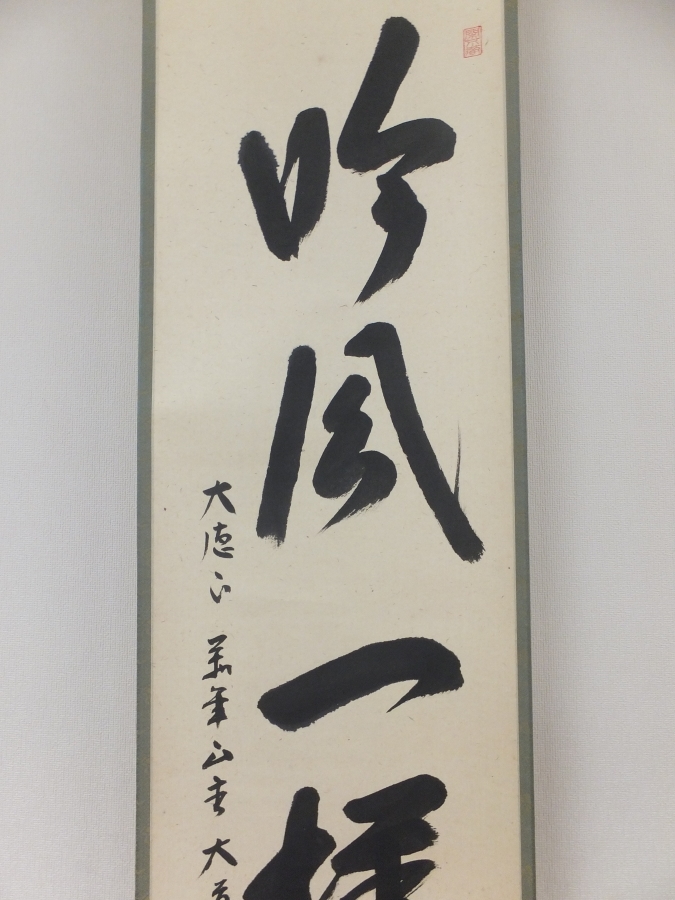 吟風一様
大徳下 萬年山主 大